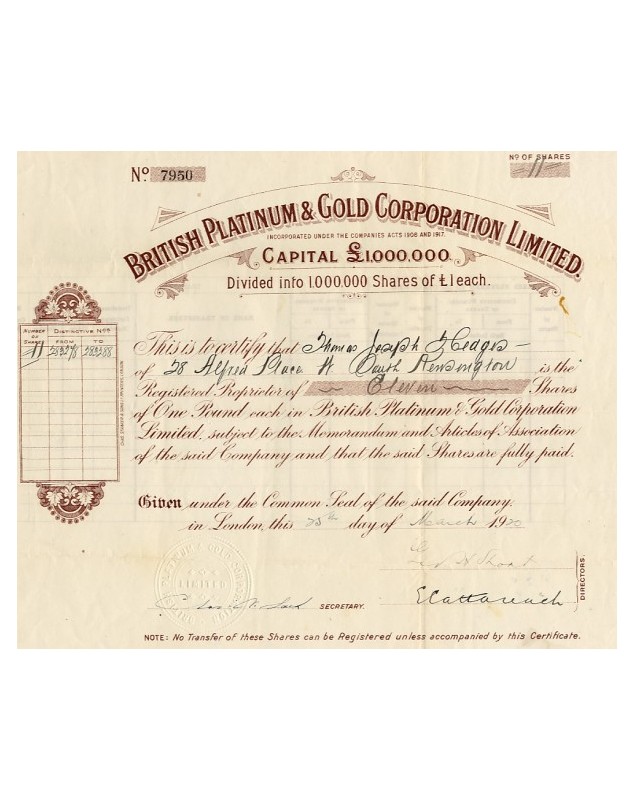 Nº 7950
Nº OF SHARES
11
BRITISH PLATINUM & GOLD CORPORATION LIMITED.
INCORPORATED UNDER THE COMPANIES ACTS 1908 AND 1917.
CAPITAL £1,000,000.
Divided into 1,000,000 Shares of £1 each.
NUMBER OF SHARES
DISTINCTIVE NOS
FROM TO
11
This is to certify that Thomas Joseph Hodges
of 28 Alfred Place W South Kensington is the
Registered Proprietor of Eleven Shares
of One Pound each in British Platinum & Gold Corporation
Limited, subject to the Memorandum and Articles of Association
of the said Company and that the said Shares are fully paid.
Given under the Common Seal of the said Company.
in London, this 25th day of March 1920
PLATINUM & GOLD
LIMITED
SECRETARY.
DIRECTORS.
NOTE: No Transfer of these Shares can be Registered unless accompanied by this Certificate.